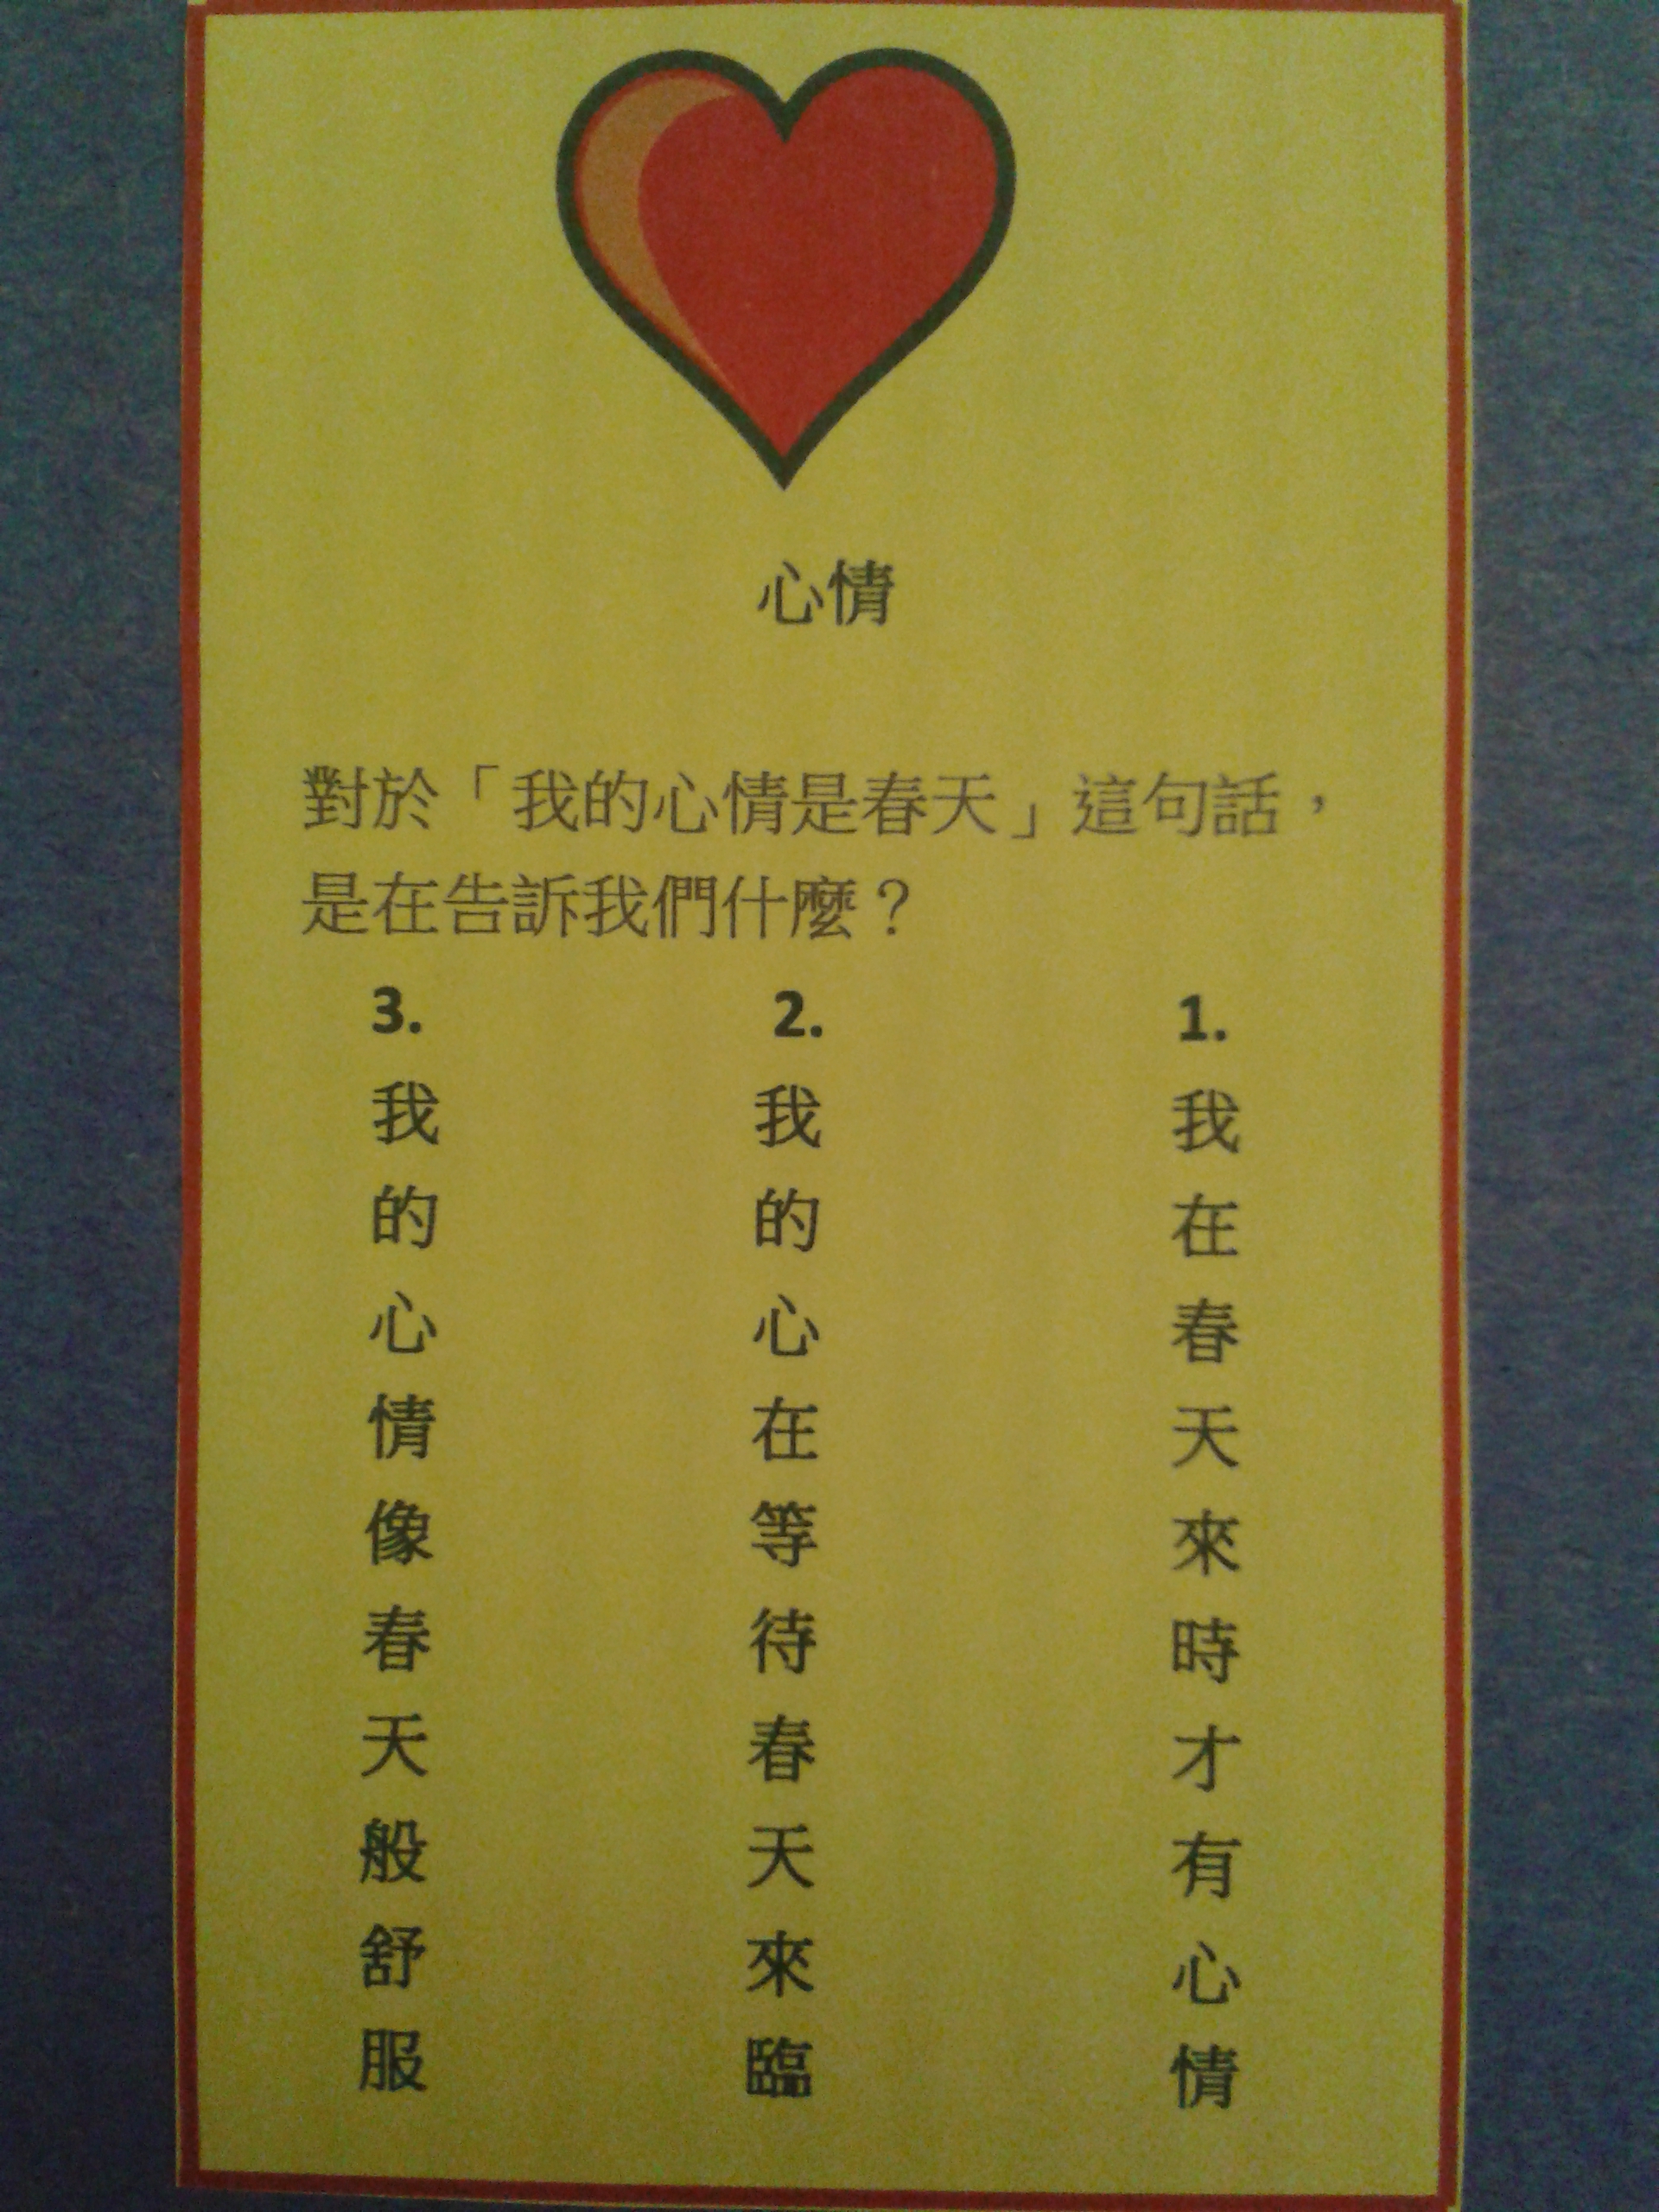 心情
對於「我的心情是春天」這句話，
是在告訴我們什麼？
1.我在春天來時才有心情
2.我的心在等待春天來臨
3.我的心情像春天般舒服